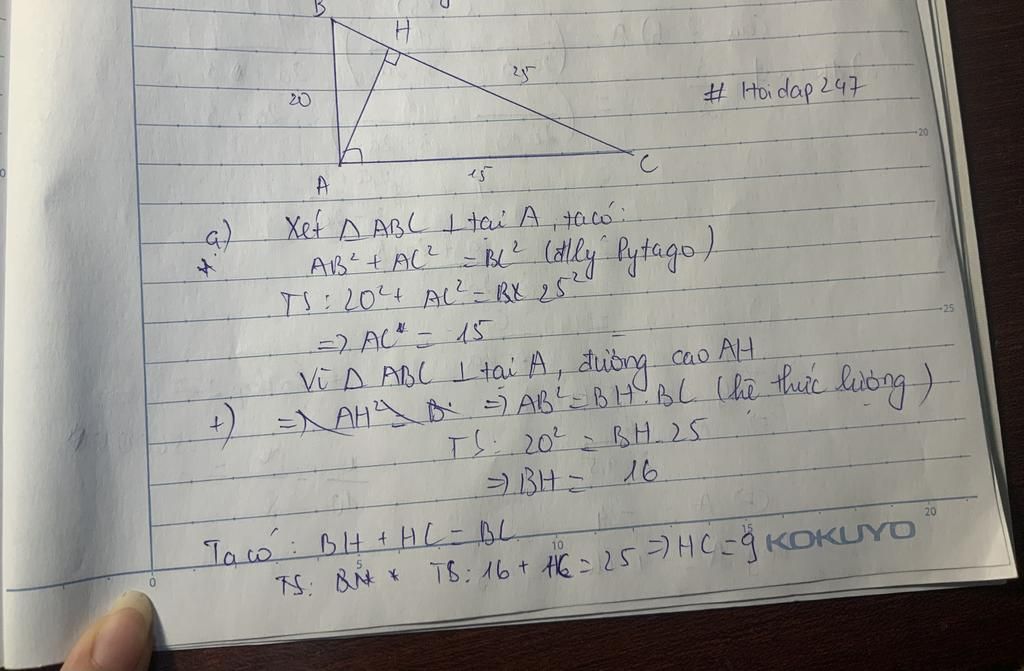 B
H
20
25
# Hoidap247
A
15
C
20
a) Xét Δ ABC ⊥ tại A, ta có:
AB² + AC² = BC² (đlý Pytago)
TS: 20² + AC² = 25²
=> AC = 15
25
Vì Δ ABC ⊥ tại A, đường cao AH
+) => AH² = B => AB² = BH . BC (hệ thức lượng)
TS: 20² = BH . 25
=> BH = 16
Ta có: BH + HC = BC
TS: 16 + HC = 25 => HC = 9
0 5 10 15 20
KOKUYO